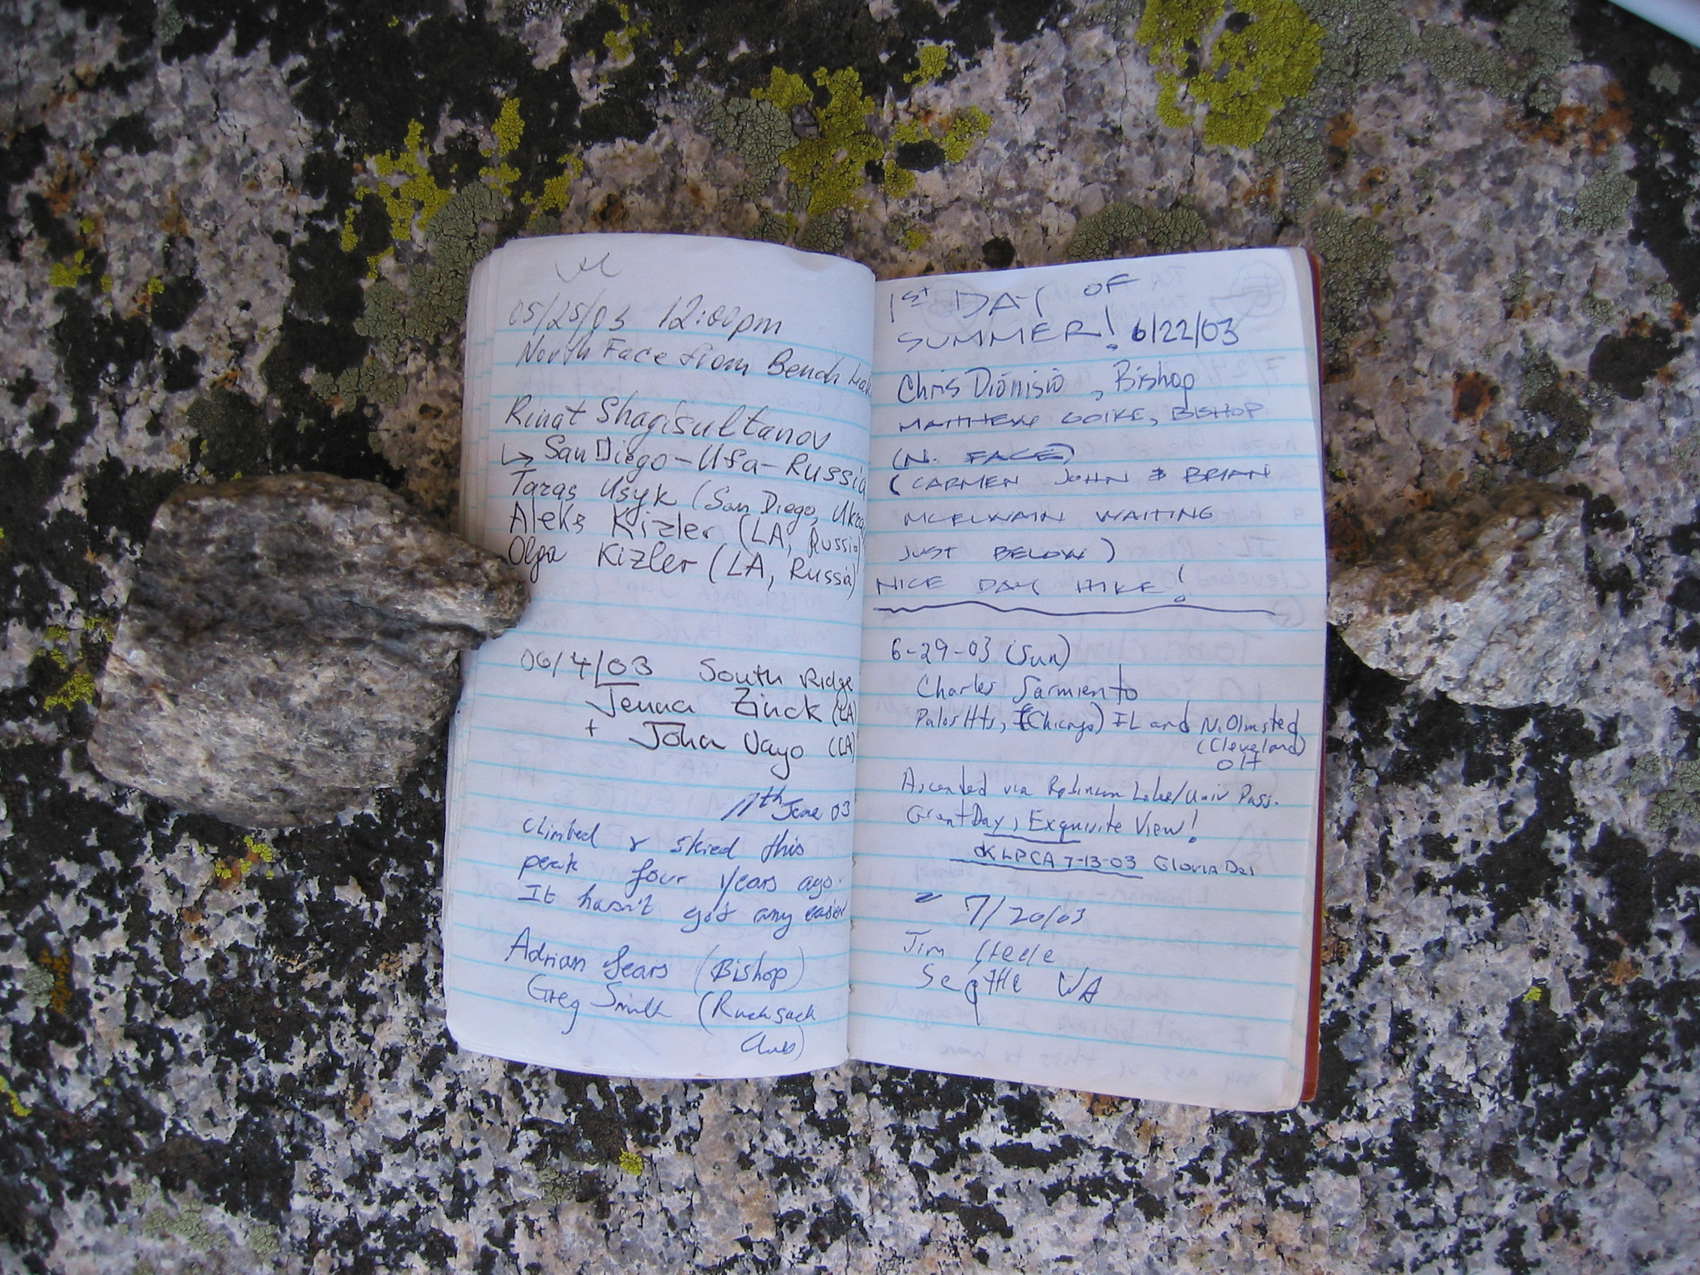 05/25/03 12:00pm
North Face from Bench
Rinat Shagisultanov
↳ San Diego - Ufa - Russia
Taras Usyk (San Diego,
Aleks Kizler (LA, Russia)
Olga Kizler (LA, Russia)
06/4/03 South Ridge
Jenna Zinck (LA)
+ John Vayo (CA)
11th June 03
climbed & skied this
peak four years ago.
It hasn't got any easier
Adrian Sears (Bishop)
Greg Smith (Rucksack
Club)
1st DAY OF
SUMMER! 6/22/03
Chris Dionisio, Bishop
MATTHEW GOIKE, BISHOP
(N. FACE)
(CARMEN JOHN & BRIAN
MCELWAIN WAITING
JUST BELOW)
NICE DAY HIKE!
6-29-03 (Sun)
Charles Sarmiento
Palos Hts, (Chicago) IL and N. Olmsted
(Cleveland)
OH
Ascended via Lake/Univ Pass.
Great Day, Exquisite View!
7-13-03
7/20/03
Jim Steele
Seattle WA